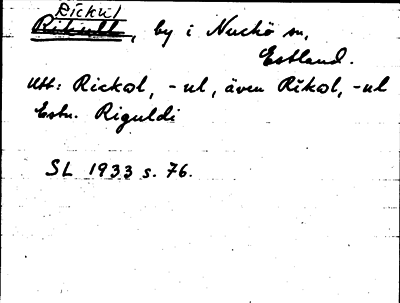 Rickul
Rikull, by i Nuckö sn,
Estland.
Utt: Rickol, -ul, även Rikol, -ul
Estn. Riguldi
SL 1933 s. 76.